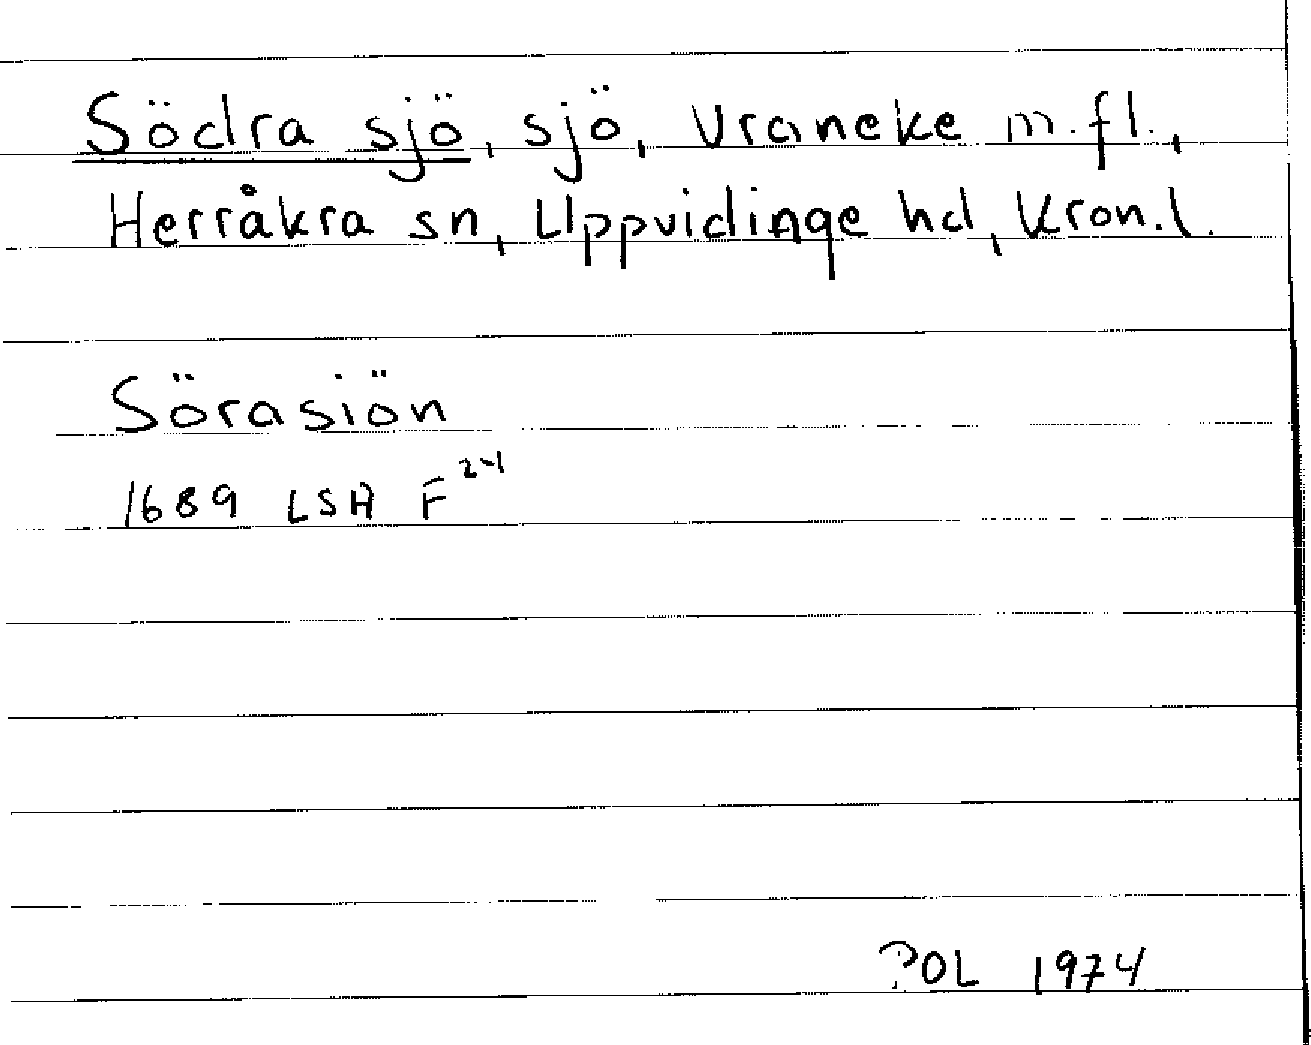 Södra sjö, sjö, Vraneke m.fl.,
Herråkra sn, Uppvidinge hd, Kron.l.
Sörasiön
1689 LSA F 24
POL 1974